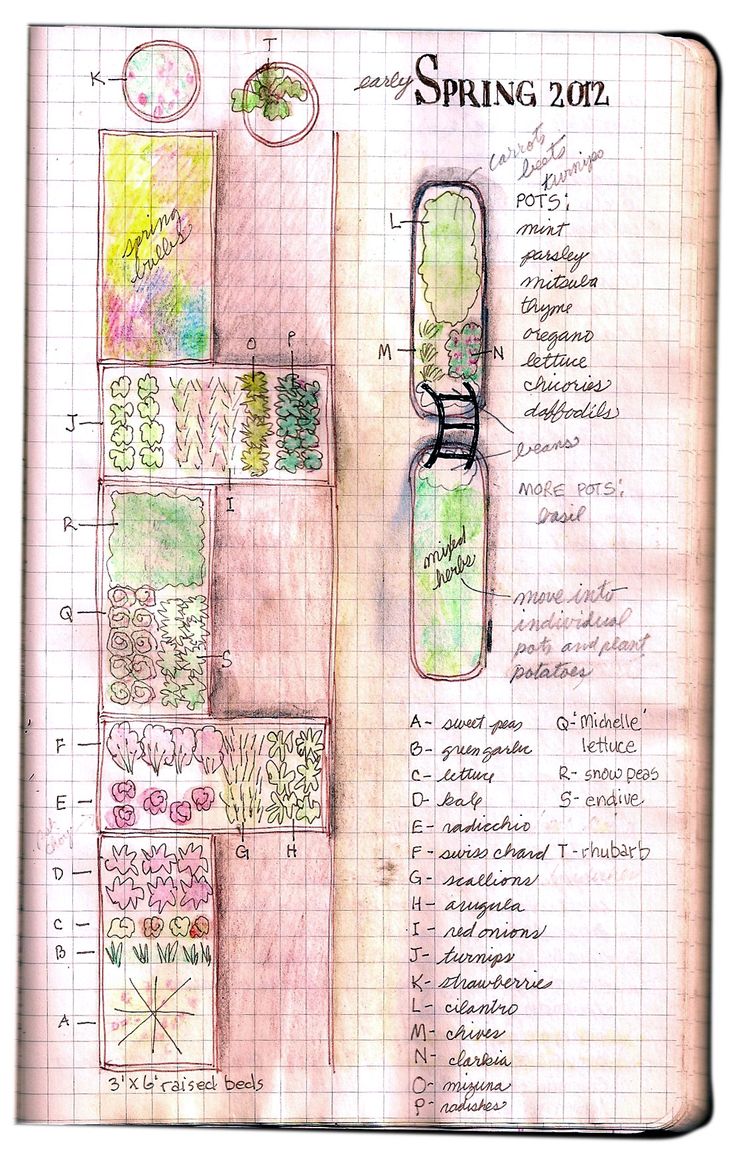 early SPRING 2012
K
T
carrots
beets
turnips
POTS:
mint
parsley
mitsuba
thyme
oregano
lettuce
chicories
daffodils
L
spring
bulbs
M
N
O
P
J
I
beans
MORE POTS:
basil
R
mixed
herbs
move into
individual
pots and plant
potatoes
Q
S
F
E
G
H
D
C
B
A
3' x 6' raised beds
A - sweet peas
B - green garlic
C - lettuce
D - kale
E - radicchio
F - swiss chard
G - scallions
H - arugula
I - red onions
J - turnips
K - strawberries
L - cilantro
M - chives
N - clarkia
O - mizuna
P - radishes
Q - 'Michelle'
lettuce
R - snow peas
S - endive
T - rhubarb